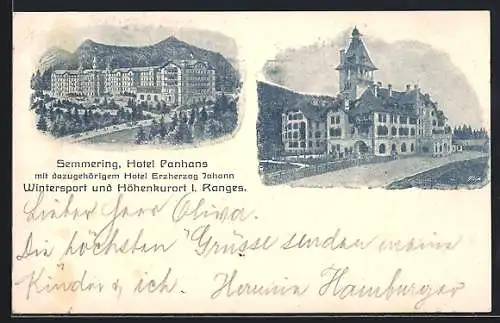 Semmering, Hotel Panhans
mit dazugehörigem Hotel Erzherzog Johann
Wintersport und Höhenkurort I. Ranges.
Lieber Herr Oliva.
Die „höchsten" Grüsse senden meine
Kinder & ich. Hermine Hamburger